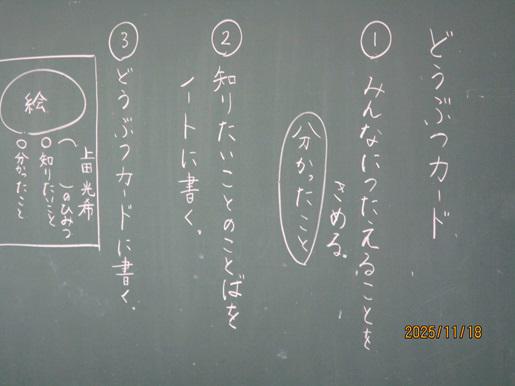 どうぶつカード
① みんなにつたえることを
きめる。
分かったこと
② 知りたいことのことばを
ノートに書く。
③ どうぶつカードに書く。
上田光希
( )のひみつ
○知りたいこと
○分かったこと
絵
2025/11/18